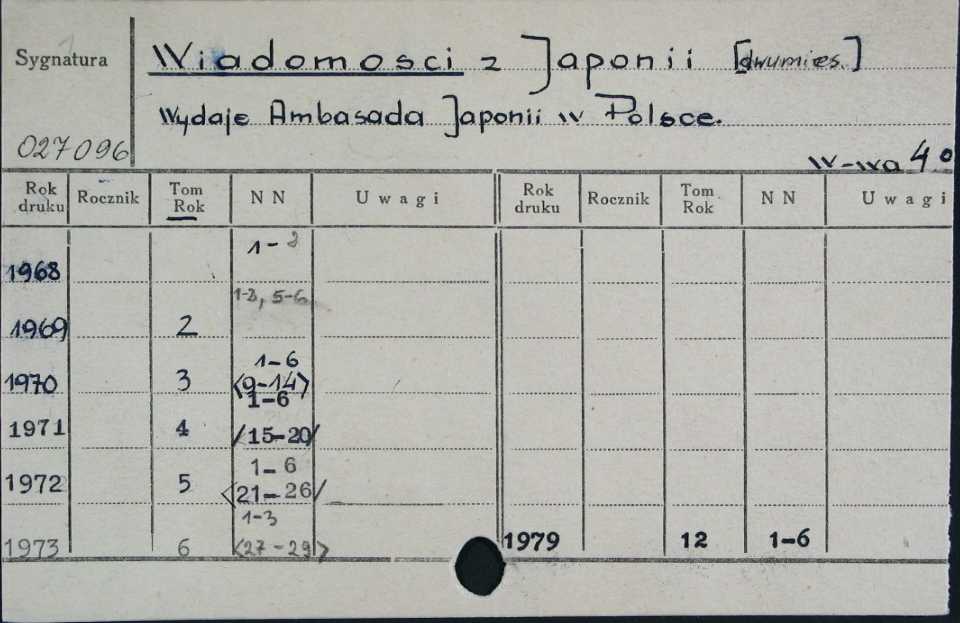 Sygnatura
Wiadomości z Japonii [dwumies.]
Wydaje Ambasada Japonii w Polsce.
027096
W-wa 4°
Rok druku Rocznik Tom Rok NN Uwagi Rok druku Rocznik Tom Rok NN Uwagi
1968 1-2
1969 2 1-3, 5-6
1970 3 1-6 <9-14>
1971 4 1-6 /15-20/
1972 5 1-6 <21-26/
1973 6 1-3 <27-29> 1979 12 1-6